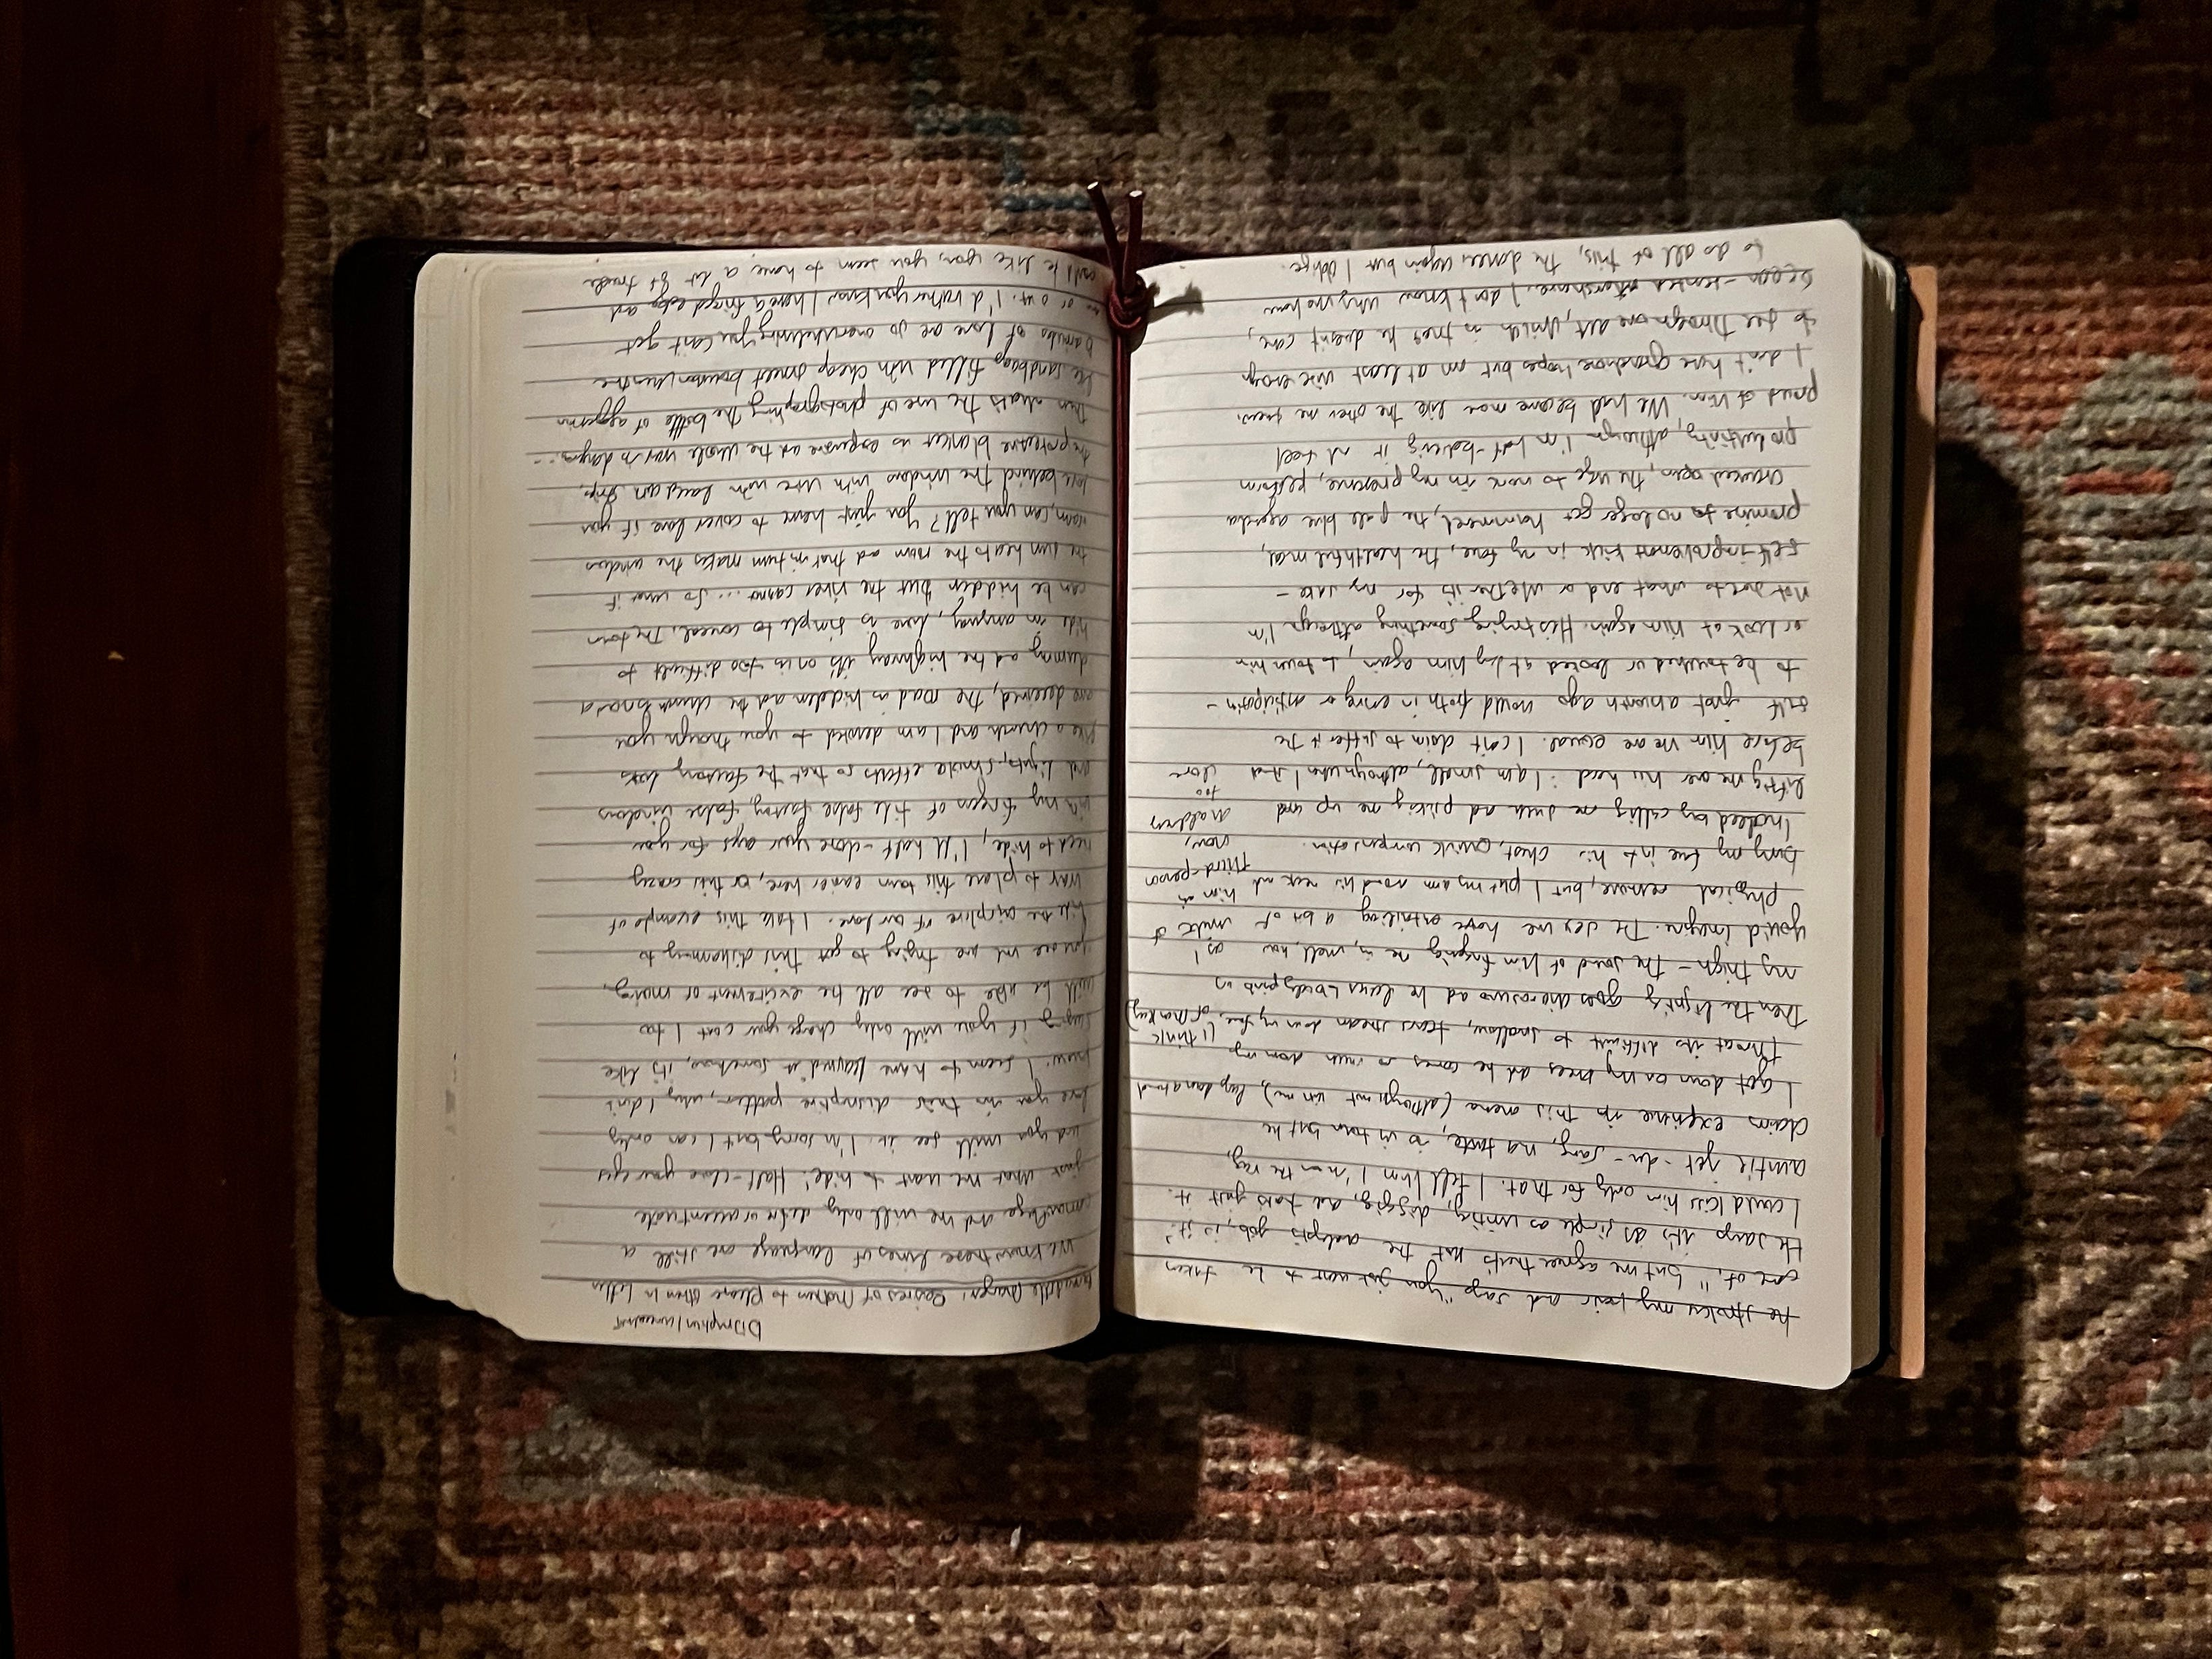 He strokes my hair and says "you just want to be taken
care of," but we agree that's not the adept's job, is it?
He says it's as simple as writing, digging, and that's just it.
I could kiss him only for that. I tell him I'm on the rag,
auntie jet-du-sang, na tante, is in town but he
claims expertise in this arena (although not in me), lays down a towel
I get down on my knees and he comes so much down my
throat its difficult to swallow, tears stream down my face,
(I think
of Monkey)
Then the lights goes chiaroscuro and he leaves bodyprints on
my thigh – the sound of him fingering me is, well, how
you'd imagine. The sex we have entailing a bit of
physical remove, but I put my arm round his neck and
bury my face into his chest, quick compensation.
as I
write of
him in
third-person
now,
maudlin
too
close
Indeed by calling me such and picking me up and
lifting me over his head: I am small, although when I stand
before him we are equal. I can't claim to suffer it the
self just a month ago would froth in envy or anticipation –
to be touched or looked at by him again, to touch him
or look at him again. He's trying something although I'm
not sure to what end or whether it's for my sake –
self-improvement kick in my face, the healthful meal,
promise to no longer get hammered, the pale blue agenda
cracked open, the urge to work in my presence, perform
productivity, although I'm half-believing it and feel
proud of him. We had become more like the other we guess.
I don't have grandiose hopes but am at least wise enough
to see through one act, which in truth he doesn't care,
ocean-scented aftershave. I don't know why or how
to do all of this, the dance, again but I oblige.
Disruption/
Straddle Danger: Desires of Mothers to Please Others in Letters
We know these lines of language are still a
camouflage and we will only define or accentuate
just what we want to hide! Half-close your eyes
and you will see it. I'm sorry but I can only
love you in this disruptive pattern, why I don't
know, I seem to have learned it somehow, it's like
saying if you will only change your coat I too
will be able to see all the excitement of moving,
you see we are trying to get this dishearteningly to
like the airplane of our love. I take this example of
war to place this town easier here, or this crazy
need to hide, I'll half-close your eyes for you
with my fingers of tile false factory, false windows
and lights, smoke effects so that the factory looks
like a church and I am devoted to you though you
are deceived, the road is hidden and the church is not a
dummy and the highway it's on is too difficult to
hide in anyway, love is simple to conceal. The town
can be hidden but the river cannot ... so what if
the sun heats the room and that in turn makes the windows
warm, can you tell? You just have to cover love if you
hide behind the window with wire with laces on strips,
the protective blanket is expensive and the whole war is dangerous...
then what's the use of photographing the bottle of aggression
like sandbags filled with cheap sweet bourbon when the
bombs of love are so overwhelming you can't get
in or out. I'd rather you know I have a frayed edge and
could be like you, you seem to have a lot of trouble